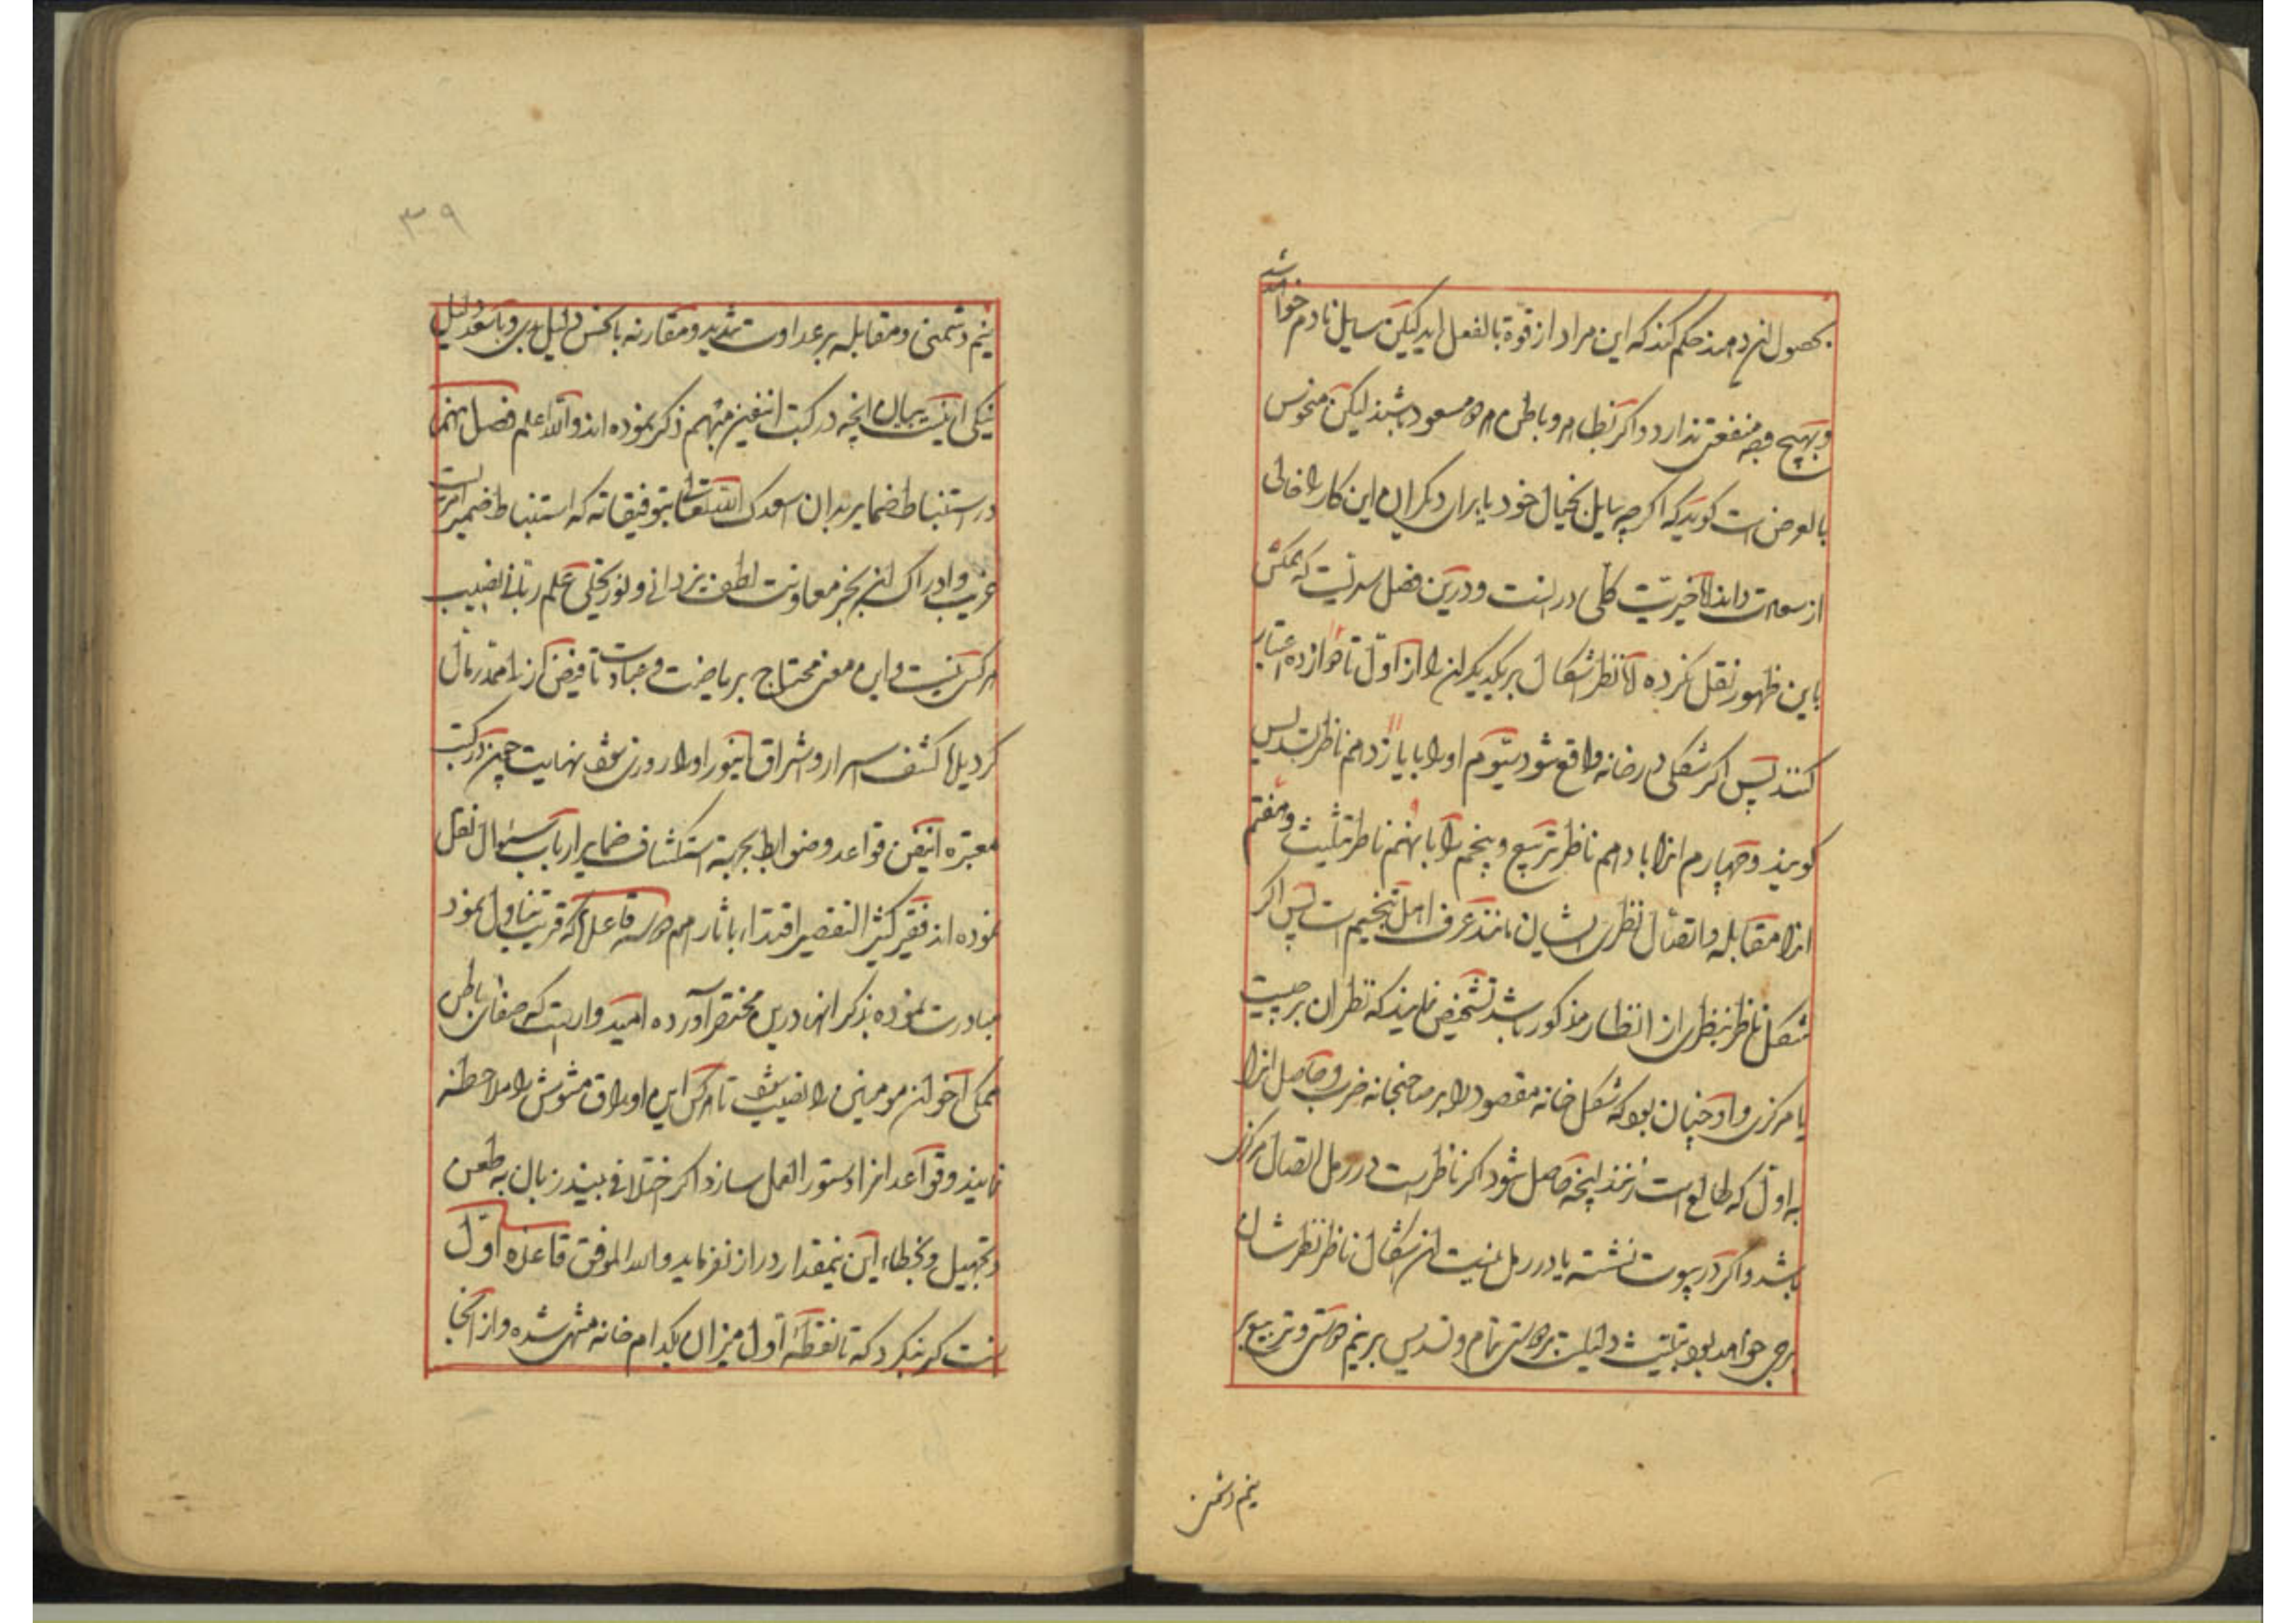 بحصول آن دهند حکم کند که این مراد از قوة بالفعل آید لیکن سایل نادم خواهد شد
و بهیچ وجه منفعتی ندارد و اگر بظاهر و باطن هر دو مسعود باشند لیکن منحوس
بالعرض است گوید که اگر چه سایل بخیال خود یا برای دیگران این کار را خالی
از سعادت داند اما خیریت کلی در آنست و درین فصل سریست که هیچکس
باین ظهور نقل نکرده اما نظر اشکال بر یکدیگر آن را از اول تا دوازده اعتبار
کنند پس اگر شکلی در خانه واقع شود سیوم او را با یازدهم ناظر بتسدیس
گویند و چهارم آنرا با دهم ناظر تربیع و پنجم را با نهم ناظر تثلیث و هفتم
آنرا مقابله و اتصال نظری ایشان مانند عرف اهل تنجیم است پس اگر
شکل ناظر بنظری از انظار مذکور باشد تشخیص نمایند که نظر آن بر چیست
یا مرکزی و او چنان بود که شکل خانه مقصود را بر صاحبخانه ضرب و حاصل آنرا
به اول که طالع است زنند آنچه حاصل شود اگر ناظر است در رمل اتصال مرکزی
باشد و اگر در بیوت نشسته یا در رمل نیست آن اشکال ناظر نظرشان
برجی خواهد بود تثلیث دلیلست بر دوستی تمام و تسدیس بر نیم دوستی و تربیع بر
نیم دشمنی
۳۹
نیم دشمنی و مقابله بر عداوت شدید و مقارنه با نحس دلیل بدی و با سعد دلیل
نیکی اینست بیان آنچه در کتب این فن مبهم ذکر نموده اند والله اعلم فصل نهم
در استنباط ضمایر بدان اسعدک الله تعالی بتوفیقاته که استنباط ضمیر امریست
غریب و ادراک آن بجز معاونت لطف یزدانی و نور تجلی علم ربانی نصیب
هر کس نیست و این معنی محتاج بریاضت و عبادت تا فیض از
کردید کشف اسرار و اشراق انوار او را روزی شود نهایت چون در کتب
معتبره این فن قواعد و ضوابط بجهة استکشاف ضمایر ارباب سؤال نقل
نموده اند فقیر کثیر التقصیر اقتداء باثارهم هر سه قاعده که قریب تناول نمود
مبادرت نموده بذکر آنها درین مختصر آورده امیدوار است که صفای باطن
همگی اخوان مومنین را نصیب شود تا هر کس این اوراق مشوش را ملاحظه
نمایند و قواعد آنرا دستور العمل سازد اگر اختلافی بیند زبان به طعن
و تجهیل و تخطاء این بیمقدار دراز نفرماید والله الموفق قاعده اول
آنست که بنگرد که تا نقطهٔ اول میزان بکدام خانه منتهی شده و از آنجا